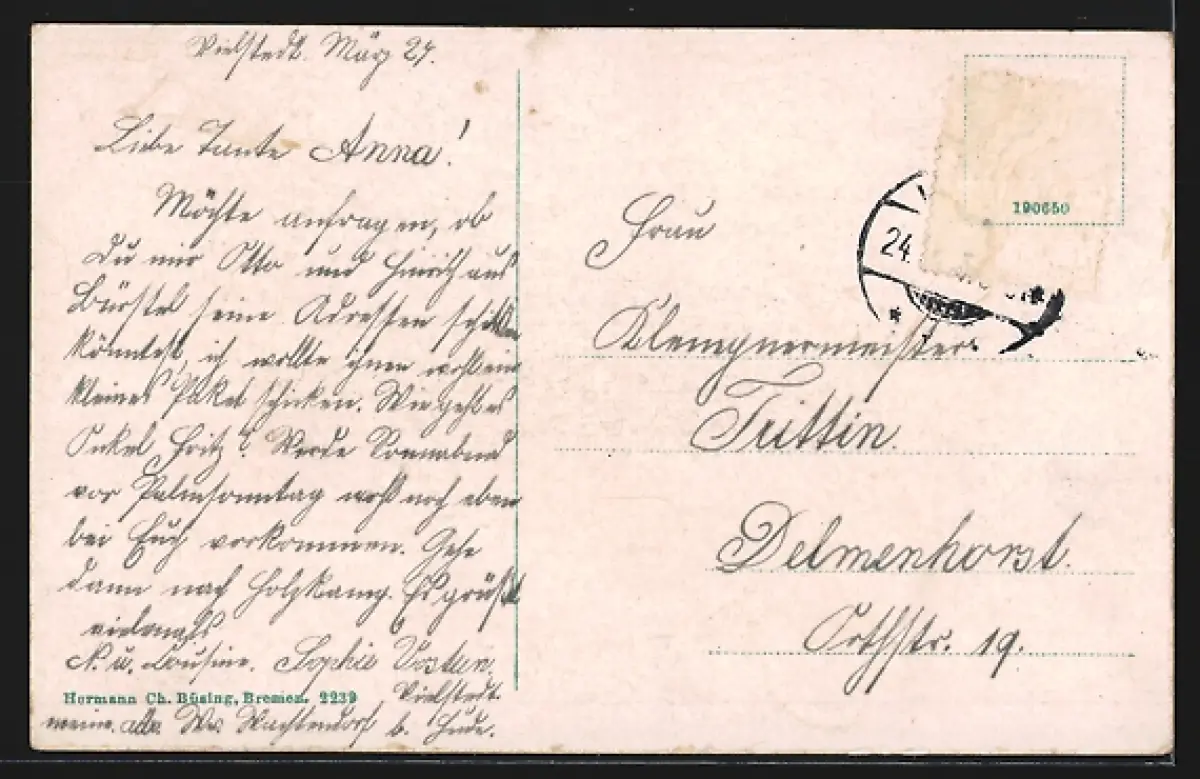 Vielstedt. März 24.
Liebe Tante Anna!
Möchte anfragen, ob
Du mir Otto und Hinrich aus
Bürstel seine Adressen schicken
könntest, ich wollte ihnen wohl ein
kleines Paket schicken. Wie geht es
Onkel Fritz? Werde Sonnabend
vor Palmsonntag wohl noch eben
bei Euch vorkommen. Gehe
dann nach Holzkamp. Es grüßt
vielmals
N. u. Cousine. Sophie
Vielstedt
Hermann Ch. Büsing, Bremen. 2239
meine Wachtendorf b. Hude.
190650
24.
Frau
Klempnermeister
Trittin.
Delmenhorst.
Orthstr. 19.